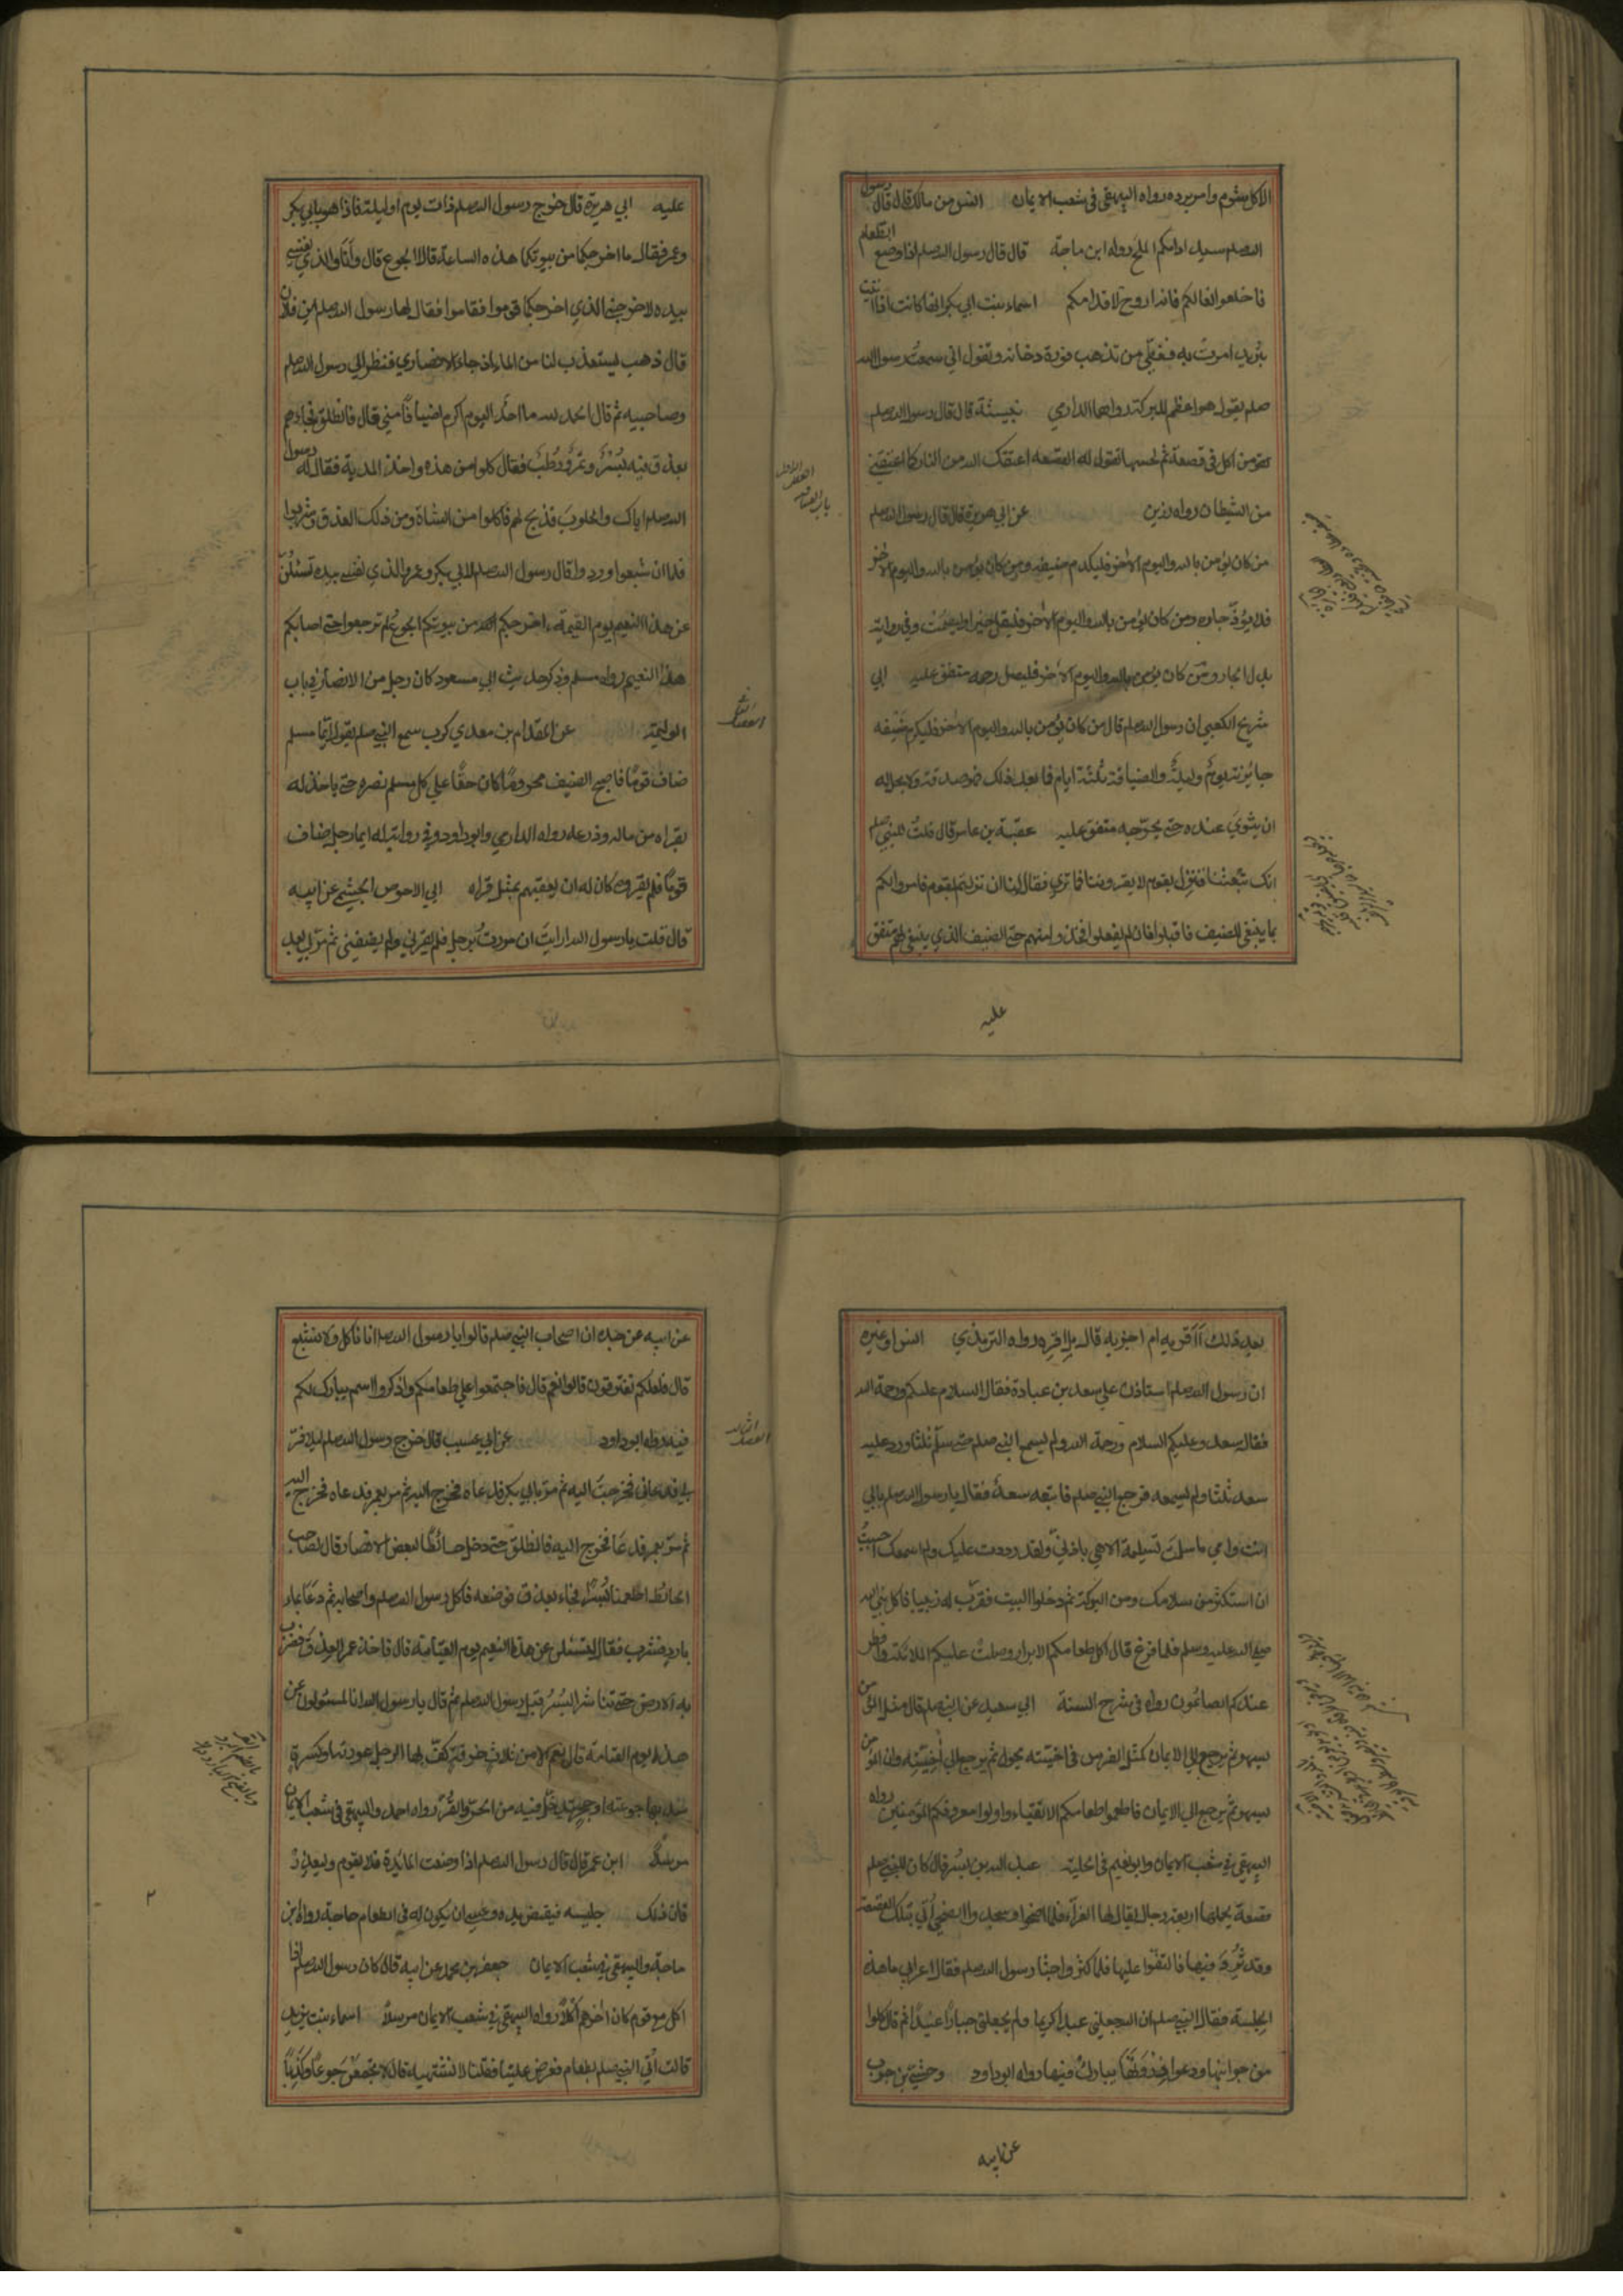 الاكل مشوم وامر برده رواه البيهقي في شعب الايمان انس بن مالك قال قال رسول
الله صلم سيد ادامكم الملح رواه ابن ماجة قال قال رسول الله صلم اذا وضع الطعام
فاخلعوا نعالكم فانه اروح لاقدامكم اسماء بنت ابي بكر انها كانت اذا اتيت
بثريد امرت به فغطي حتى تذهب فورة دخانه وتقول اني سمعت رسول الله
صلم يقول هو اعظم للبركة رواهما الدارمي نبيشة قال قال رسول الله صلم
من اكل في قصعة ثم لحسها تقول له القصعة اعتقك الله من النار كما اعتقتني
من الشيطان رواه رزين عن ابي هريرة قال قال رسول الله صلم
من كان يؤمن بالله واليوم الاخر فليكرم ضيفه ومن كان يؤمن بالله واليوم الاخر
فلا يؤذ جاره ومن كان يؤمن بالله واليوم الاخر فليقل خيرا او ليصمت وفي رواية
بدل الجار ومن كان يؤمن بالله واليوم الاخر فليصل رحمه متفق عليه ابي
شريح الكعبي ان رسول الله صلم قال من كان يؤمن بالله واليوم الاخر فليكرم ضيفه
جايزته يوم وليلة والضيافة ثلثة ايام فما بعد ذلك فهو صدقة ولا يحل له
ان يثوي عنده حتى يحرجه متفق عليه عقبة بن عامر قال قلت للنبي صلم
انك تبعثنا فننزل بقوم لا يقروننا فما تري فقال لنا ان نزلتم بقوم فامروا لكم
بما ينبغي للضيف فاقبلوا فان لم يفعلوا فخذوا منهم حق الضيف الذي ينبغي لهم متفق
عليه
باب الضيافة
الفصل الاول
عليه ابي هريرة قال خرج رسول الله صلم ذات يوم او ليلة فاذا هو بابي بكر
وعمر فقال ما اخرجكما من بيوتكما هذه الساعة قالا الجوع قال وانا والذي نفسي
بيده لاخرجني الذي اخرجكما قوموا فقاموا فقال لها رسول الله صلم اين فلان
قال ذهب يستعذب لنا من الماء اذ جاء الانصاري فنظر الى رسول الله صلم
وصاحبيه ثم قال الحمد لله ما احد اليوم اكرم اضيافا مني قال فانطلق فجاءهم
بعذق فيه بسر وتمر ورطب فقال كلوا من هذه واخذ المدية فقال له رسول
الله صلم اياك والحلوب فذبح لهم فاكلوا من الشاة ومن ذلك العذق وشربوا
فلما ان شبعوا ورووا قال رسول الله صلم لابي بكر وعمر والذي نفسي بيده تسئلن
عن هذا النعيم يوم القيمة اخرجكم من بيوتكم الجوع ثم لم ترجعوا حتى اصابكم
هذا النعيم رواه مسلم وذكر حديث ابي مسعود كان رجل من الانصار في باب
الوليمة عن المقدام بن معدي كرب سمع النبي صلم يقول ايما مسلم
ضاف قوما فاصبح الضيف محروما كان حقا علي كل مسلم نصره حتى ياخذ له
بقراه من ماله وزرعه رواه الدارمي وابو داود وفي رواية له ايما رجل ضاف
قوما فلم يقروه كان له ان يعقبهم بمثل قراه ابي الاحوص الجشمي عن ابيه
قال قلت يا رسول الله ارايت ان مررت برجل فلم يقرني ولم يضيفني ثم مر بي بعد
بعد ذلك أأقريه ام اجزيه قال بل اقره رواه الترمذي انس او غيره
ان رسول الله صلم استاذن علي سعد بن عبادة فقال السلام عليكم ورحمة الله
فقال سعد وعليكم السلام ورحمة الله ولم يسمع النبي صلم حتى سلم ثلثا ورد عليه
سعد ثلثا ولم يسمعه فرجع النبي صلم فاتبعه سعد فقال يا رسول الله صلم بابي
انت وامي ما سلمت تسليمة الا هي باذني ولقد رددت عليك ولم اسمعك احببت
ان استكثر من سلامك ومن البركة ثم دخلوا البيت فقرب له زبيبا فاكل نبي الله
صلي الله عليه وسلم فلما فرغ قال اكل طعامكم الابرار وصلت عليكم الملائكة وافطر
عندكم الصائمون رواه في شرح السنة ابي سعيد عن النبي صلم قال مثل المؤمن
يسهو ثم يرجع الي الايمان كمثل الفرس في اخيته يجول ثم يرجع الي اخيته وان المؤمن
يسهو ثم يرجع الي الايمان فاطعموا طعامكم الاتقياء واولوا معروفكم المؤمنين رواه
البيهقي في شعب الايمان وابو نعيم في الحلية عبد الله بن بسر قال كان للنبي صلم
قصعة يحملها اربعة رجال يقال لها الغراء فلما اضحوا وسجدوا الضحي أتي بتلك القصعة
وقد ثرد فيها فالتفوا عليها فلما كثروا جثا رسول الله صلم فقال اعرابي ما هذه
الجلسة فقال النبي صلم ان الله جعلني عبدا كريما ولم يجعلني جبارا عنيدا ثم قال كلوا
من جوانبها ودعوا ذروتها يبارك فيها رواه ابو داود وحشي بن حرب
عن ابيه
عن ابيه عن جده ان اصحاب النبي صلم قالوا يا رسول الله صلم انا ناكل ولا نشبع
قال فلعلكم تفترقون قالوا نعم قال فاجتمعوا علي طعامكم واذكروا اسم يبارك لكم
فيه رواه ابو داود عن ابي عسيب قال خرج رسول الله صلم ليلا فمر
بي فدعاني فخرجت اليه ثم مر بابي بكر فدعاه فخرج اليه ثم مر بعمر فدعاه فخرج اليه
ثم مر بعمر فدعا فخرج اليه فانطلق حتى دخل حائطا لبعض الانصار فقال لصاحب
الحائط اطعمنا بسرا فجاء بعذق فوضعه فاكل رسول الله صلم واصحابه ثم دعا بماء
بارد فشرب فقال لتسئلن عن هذا النعيم يوم القيامة قال فاخذ عمر العذق فضرب
به الارض حتى تناثر البسر قبل رسول الله صلم ثم قال يا رسول الله انا لمسئولون عن
هذا يوم القيامة قال نعم الا من ثلاث خرقة كف بها الرجل عورته او كسرة
سد بها جوعته او جحر يتدخل فيه من الحر والقر رواه احمد والبيهقي في شعب الايمان
مرسلا ابن عمر قال قال رسول الله صلم اذا وضعت المائدة فلا يقوم وليعذر
فان ذلك جليسه فيقبض يده وعسى ان يكون له في الطعام حاجة رواه ابن
ماجة والبيهقي في شعب الايمان جعفر بن محمد عن ابيه قال كان رسول الله صلم اذا
اكل مع قوم كان اخرهم اكلا رواه البيهقي في شعب الايمان مرسلا اسماء بنت يزيد
قالت أتي النبي صلم بطعام فعرض علينا فقلنا لا نشتهيه قال لا تجمعن جوعا وكذبا
الفصل الثالث
٢